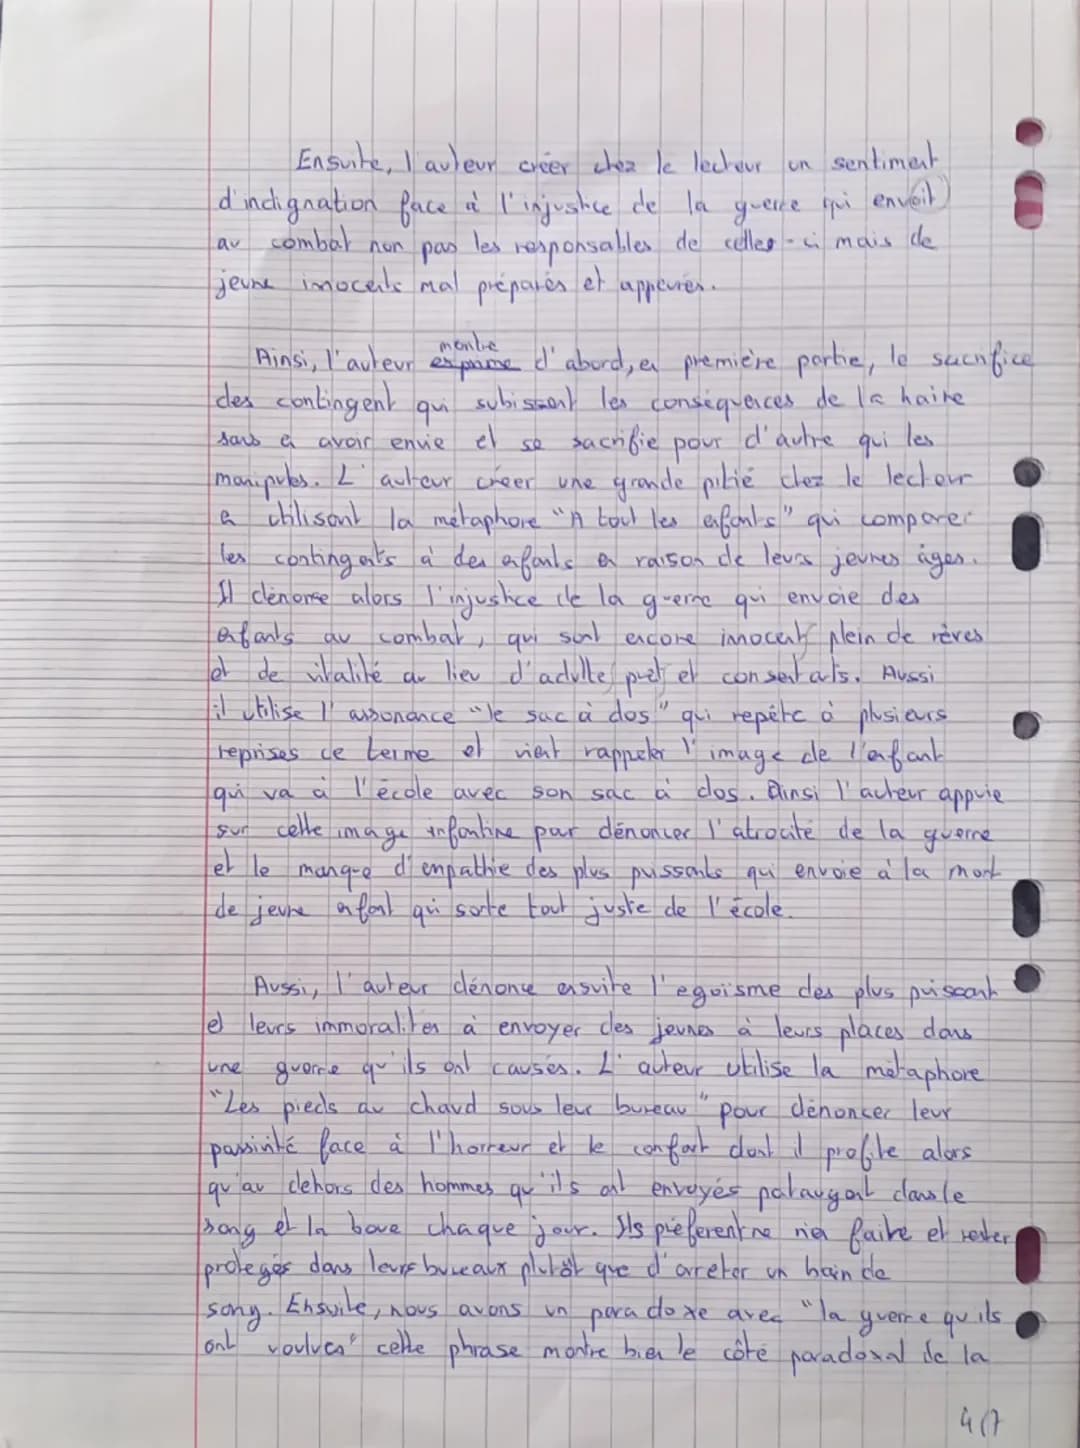 Ensuite, l'auteur créer chez le lecteur un sentiment
d'indignation face à l'injustice de la guerre qui envoit
au combat non pas les responsables de celles-ci mais de
jeune inocents mal préparés et appeurés.
Ainsi, l'auteur exprime montre d'abord, en première partie, le sacrifice
des contingent qui subissent les conséquences de la haine
sans en avoir envie et se sacrifie pour d'autre qui les
manipules. L'auteur créer une grande pitié chez le lecteur
en utilisant la métaphore "A tout les enfants" qui comparer
les contingents à des enfants en raison de leurs jeunes âges.
Il dénonse alors l'injustice de la guerre qui envoie des
enfants au combat, qui sont encore innocent plein de rêves
et de vitalité au lieu d'adulte prêt et consentants. Aussi
il utilise l'assonance "le sac à dos" qui repète à plusieurs
reprises ce terme et vient rappeler l'image de l'enfant
qui va à l'école avec son sac à dos. Ainsi l'auteur appuie
sur cette image infantine pour dénoncer l'atrocité de la guerre
et le manque d'empathie des plus puissants qui envoie à la mort
de jeune enfant qui sorte tout juste de l'école.
Aussi, l'auteur dénonce ensuite l'egoïsme des plus puissant
et leurs immoralites à envoyer des jeunes à leurs places dans
une guerre qu'ils ont causés. L'auteur utilise la métaphore
"Les pieds au chaud sous leur bureau" pour dénoncer leur
passivité face à l'horreur et le confort dont il profite alors
qu'au dehors des hommes qu'ils ont envoyés pataugent dans le
sang et la boue chaque jour. Ils préferent ne rien faire et rester
protegés dans leurs bureaux plutôt que d'arreter un bain de
sang. Ensuite, nous avons un paradoxe avec "la guerre qu'ils
ont voulues" cette phrase montre bien le côté paradoxal de la
4/7